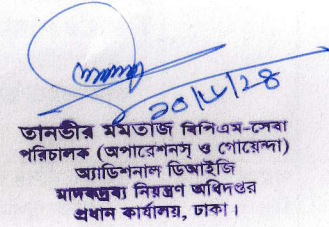 ২০/৮/২৪
তানভীর মমতাজ বিপিএম-সেবা
পরিচালক (অপারেশনস্ ও গোয়েন্দা)
অ্যাডিশনাল ডিআইজি
মাদকদ্রব্য নিয়ন্ত্রণ অধিদপ্তর
প্রধান কার্যালয়, ঢাকা।